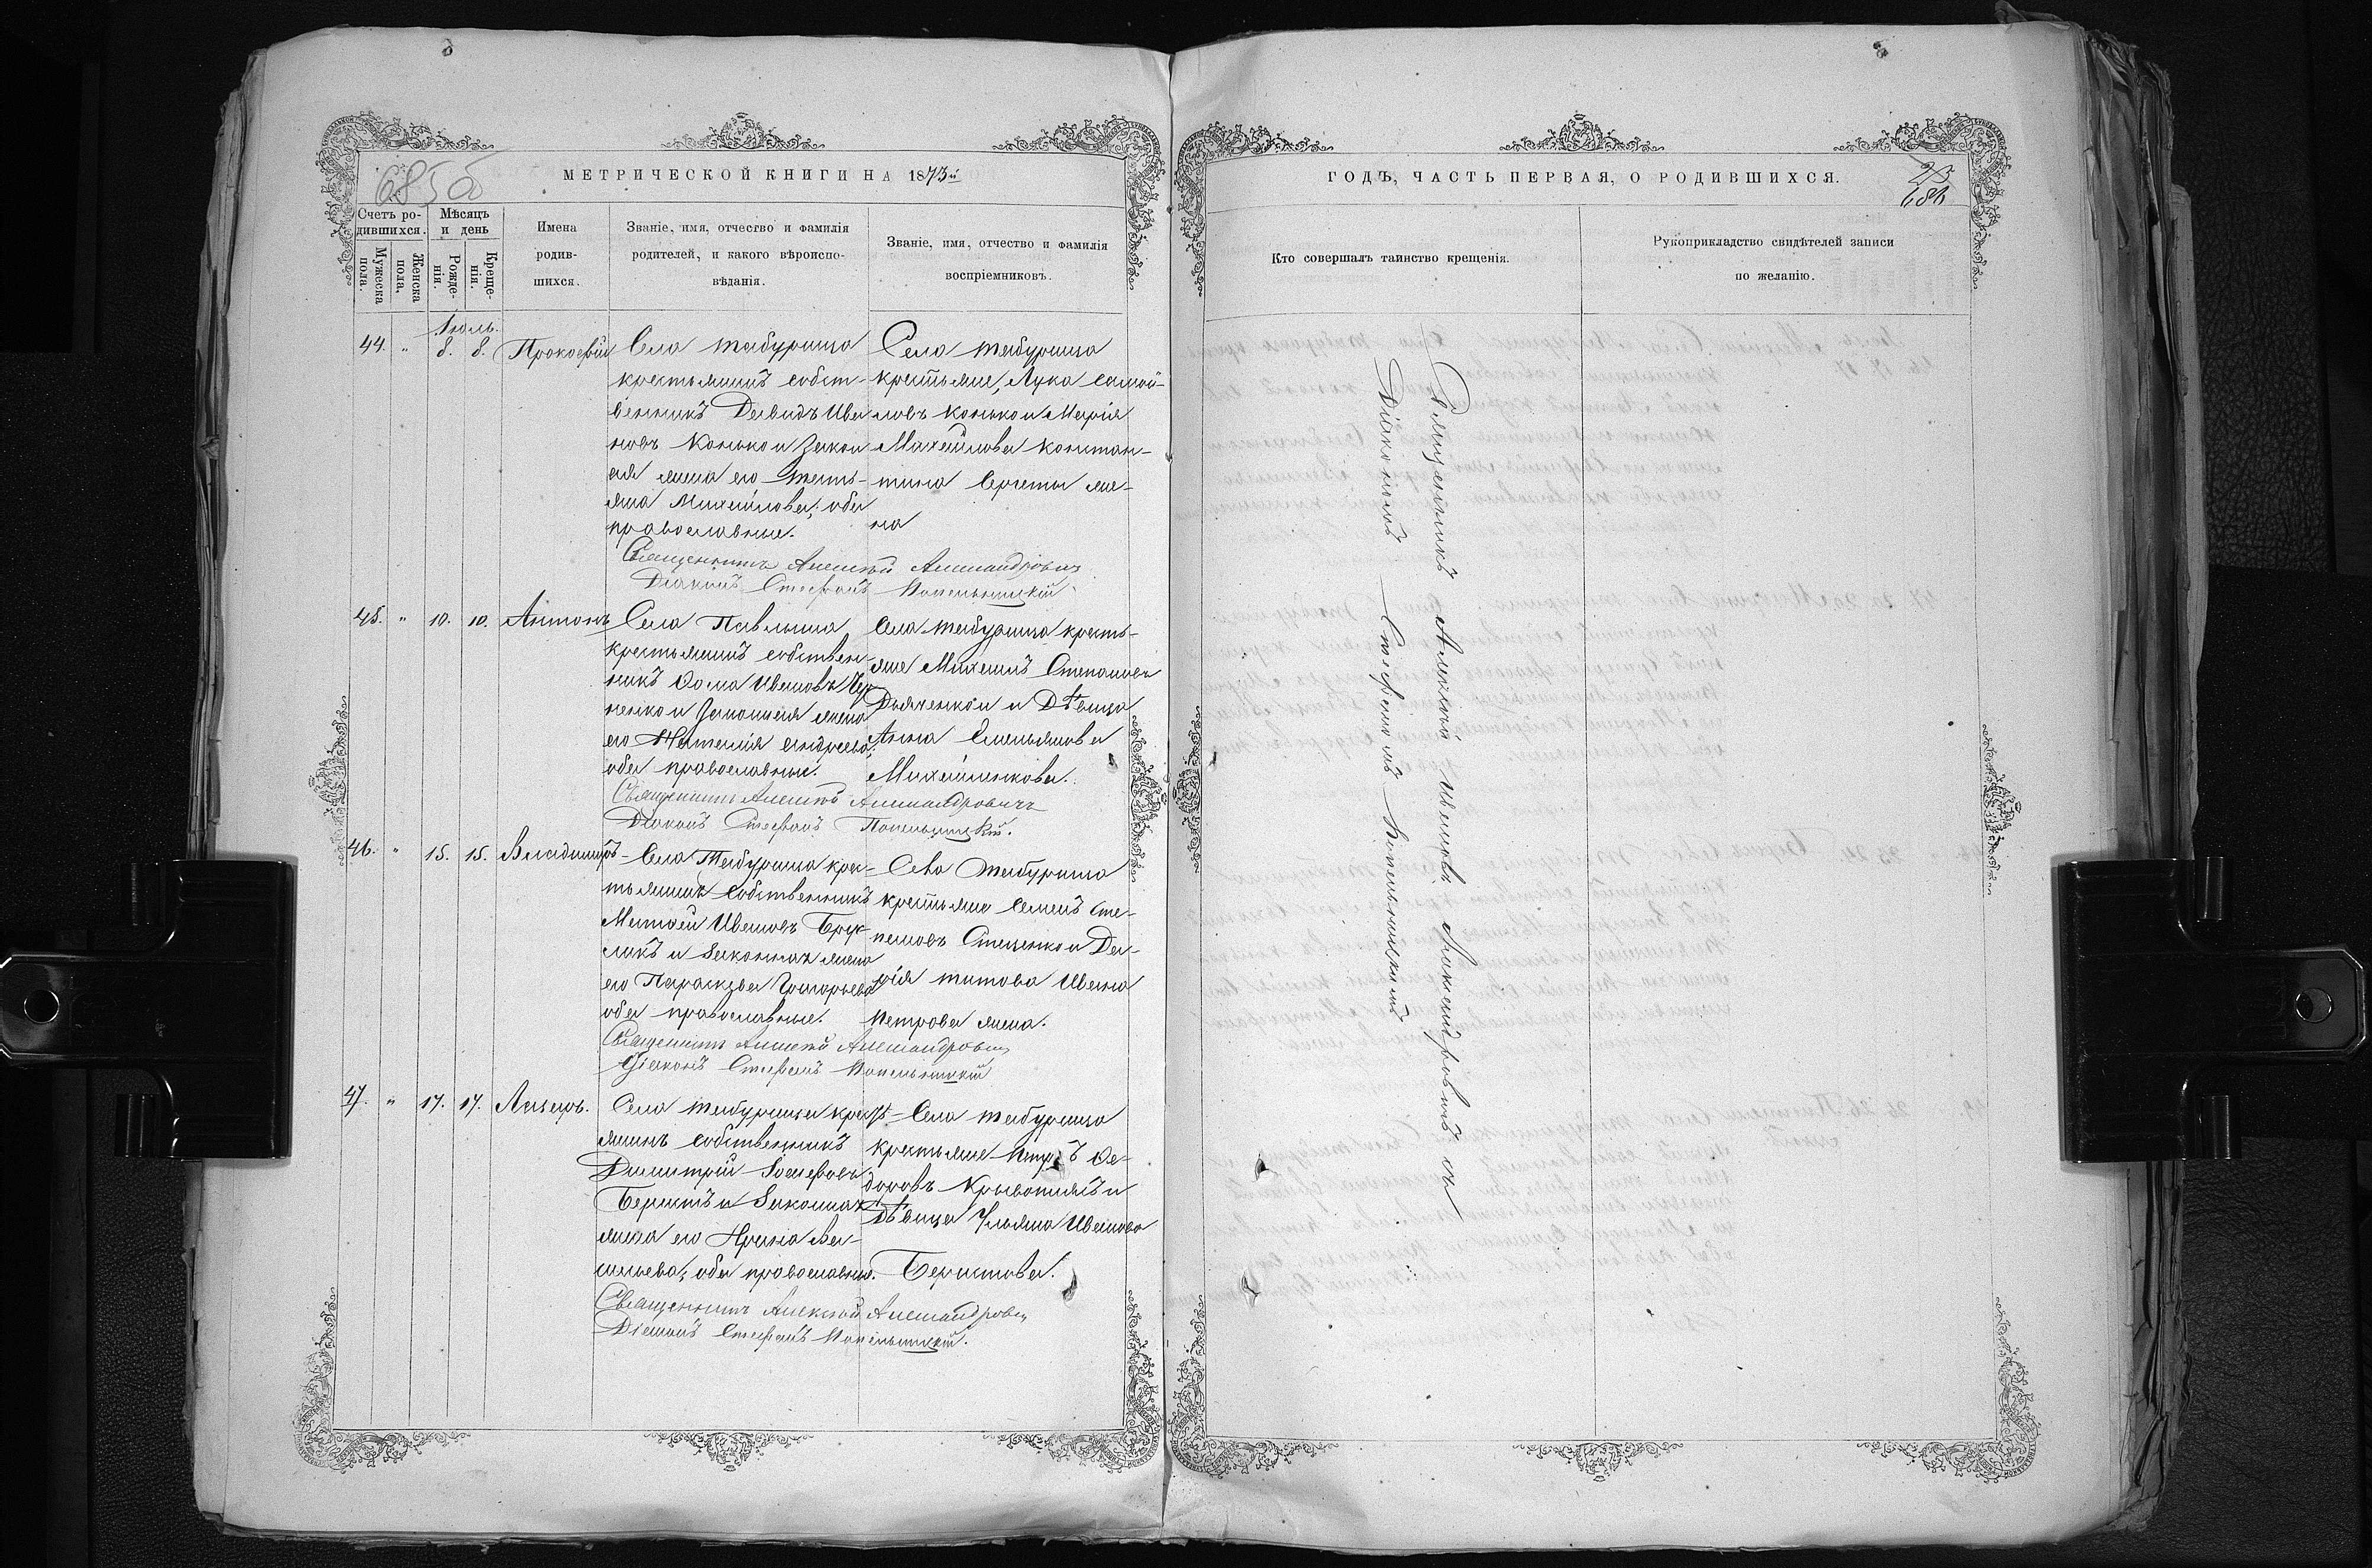 685 об
МЕТРИЧЕСКОЙ КНИГИ НА 1873й
Счетъ ро-
дившихся.
Мужеска
пола.
Женска
пола.
Мѣсяцъ
и день
Рожде-
нія.
Креще-
нія.
Имена
родив-
шихся.
Званіе, имя, отчество и фамилія
родителей, и какого вѣроиспо-
вѣданія.
Званіе, имя, отчество и фамилія
воспріемниковъ.
Іюль.
44. " 8. 8. Прокофій
Села Табурища
крестьянинъ собст-
венникъ Давидъ Ива
новъ Конько и Закон
ая жена его Тать-
яна Михайлова; оба
православные.
Села Табурища
крестьяне, Лука Самой-
ловъ Конько и Марія
Михайлова Констан-
тина же-
на
Священникъ Алексѣй Александровичъ
Діаконъ Стефанъ Попельницкій.
45. " 10. 10. Антонъ
Села Павлыша
крестьянинъ собствен-
никъ Ѳома Ивановъ
ненко и Законная жена
его Наталія Андреева;
оба православные.
Села Табурища кресть-
яне Михаилъ Степановъ
Дьяченко и и Дѣвица
Анна Емельянова
Михайленкова.
Священникъ Алексѣй Александровичъ
Діаконъ Стефанъ Попельницкій.
46. " 15. 15. Владиміръ
Села Табурища крес-
тьянинъ Собственникъ
Матѳей Ивановъ
и Законная жена
его Параскева Григорьева
оба православные.
Села Табурища
крестьяне Семенъ Сте-
пановъ Стеценко и Да-
рія Титова Ивана
Петрова жена.
Священникъ Алексѣй Александровичъ
Діаконъ Стефанъ Попельницкій
47. " 17. 17. Лазарь.
Села Табурища крест-
янинъ собственникъ
Димитрій Іосифовъ
и Законная
жена его Ирина Ва-
сильева; оба православные.
Села Табурища
крестьяне Петръ Ѳе-
доровъ и
Дѣвица Ульяна Иванова
Священникъ Алексѣй Александровичъ
Діаконъ Стефанъ Попельницкій.
ГОДЪ, ЧАСТЬ ПЕРВАЯ, О РОДИВШИХСЯ.
686
Кто совершалъ таинство крещенія.
Рукоприкладство свидѣтелей записи
по желанію.
Священникъ Алексѣй Ивановъ Александровичъ съ
Діакономъ Стефаномъ Попельницкимъ